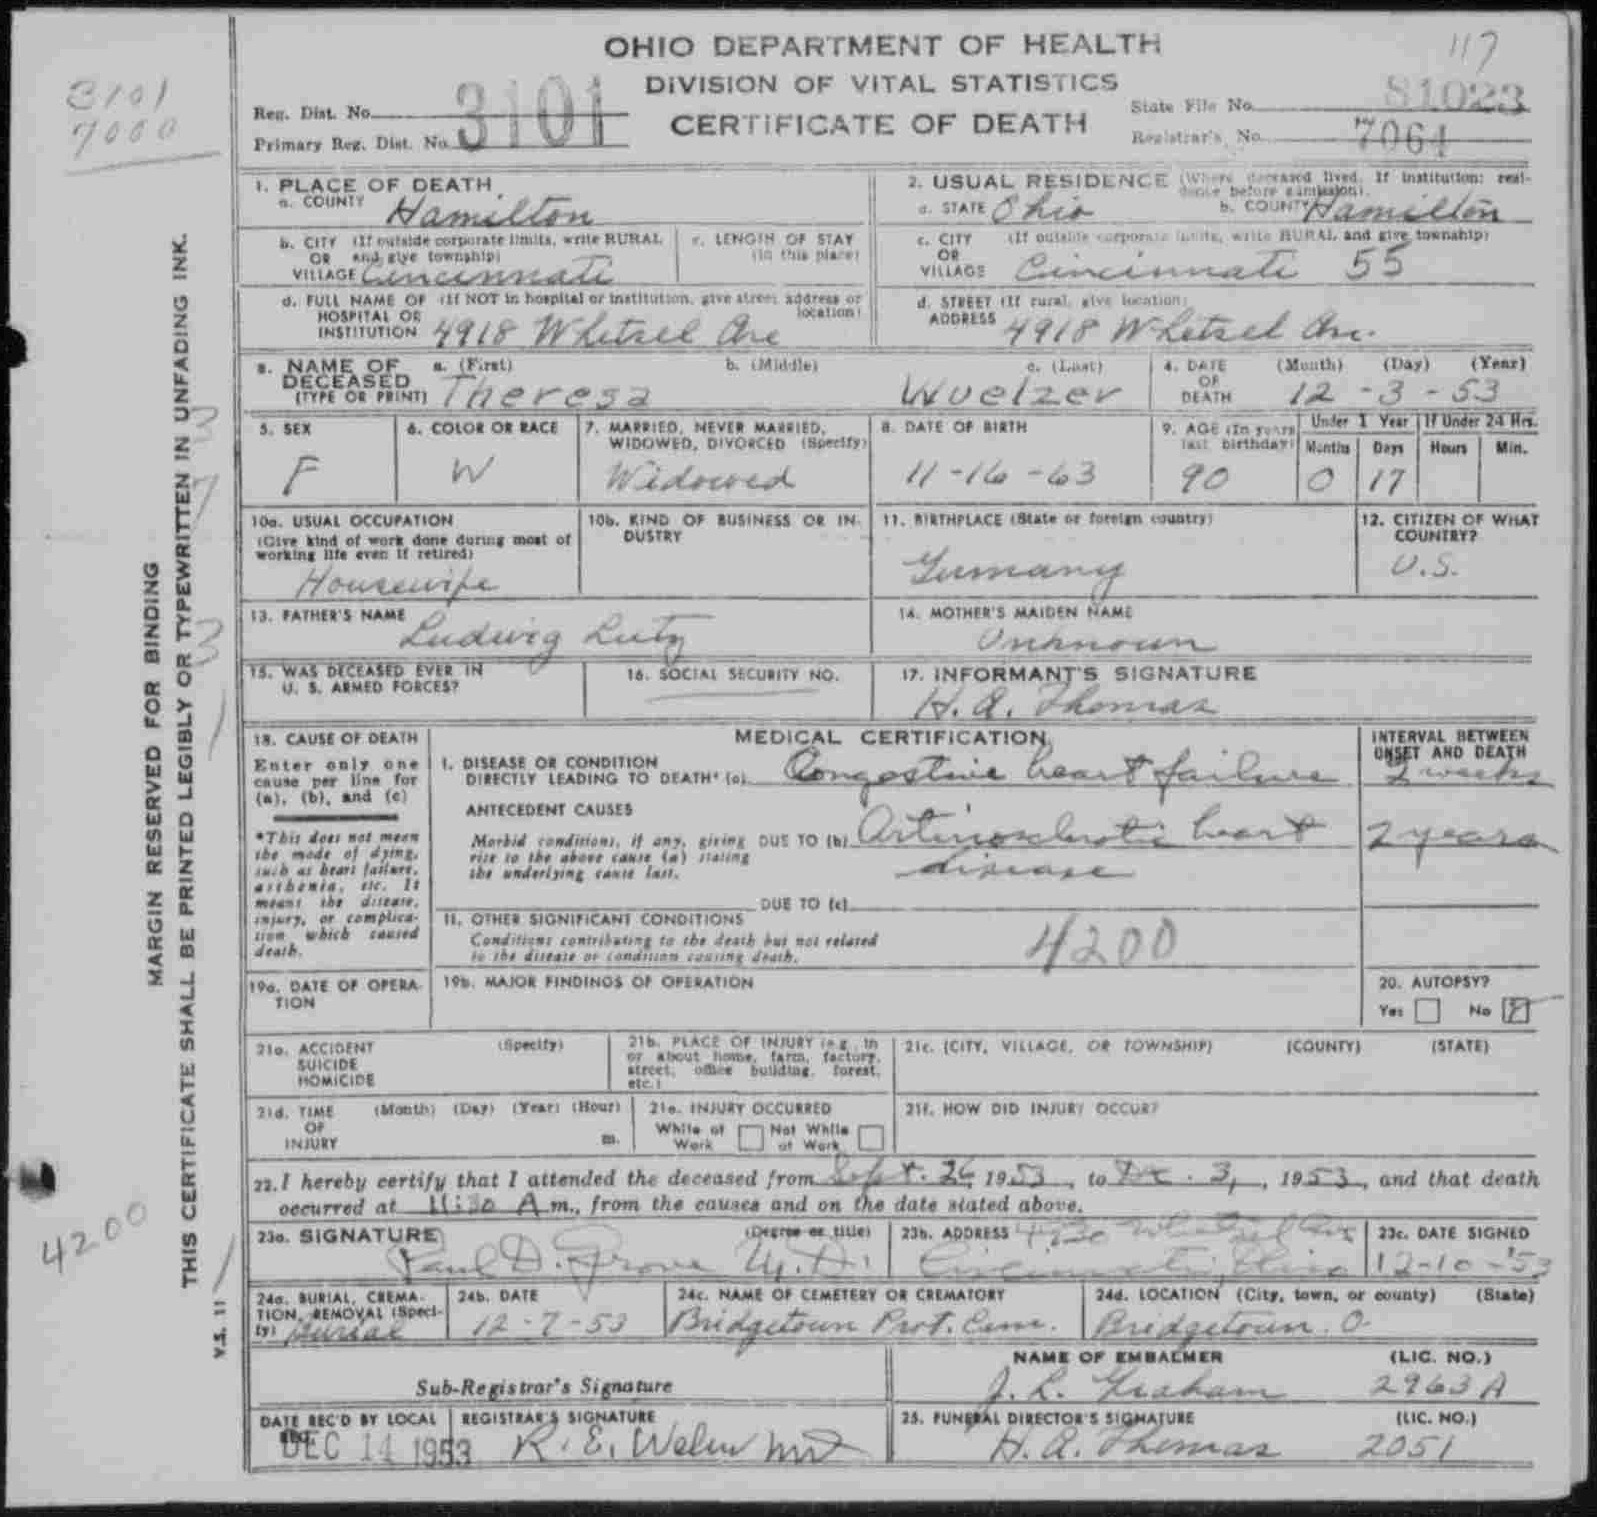 OHIO DEPARTMENT OF HEALTH
DIVISION OF VITAL STATISTICS
CERTIFICATE OF DEATH
117
3101
7000
Reg. Dist. No.
Primary Reg. Dist. No. 3101
State File No. 81023
Registrar's No. 7064
MARGIN RESERVED FOR BINDING
THIS CERTIFICATE SHALL BE PRINTED LEGIBLY OR TYPEWRITTEN IN UNFADING INK.
V.S. 11
4200
1. PLACE OF DEATH
a. COUNTY Hamilton
2. USUAL RESIDENCE (Where deceased lived. If institution: residence before admission).
a. STATE Ohio b. COUNTY Hamilton
b. CITY (If outside corporate limits, write RURAL
OR and give township)
VILLAGE Cincinnati
c. LENGTH OF STAY
(in this place)
c. CITY (If outside corporate limits, write RURAL and give township)
OR
VILLAGE Cincinnati 55
d. FULL NAME OF (If NOT in hospital or institution, give street address or location)
HOSPITAL OR
INSTITUTION 4918 Whetsel Ave
d. STREET (If rural, give location)
ADDRESS 4918 Whetsel Ave.
3. NAME OF DECEASED
(TYPE OR PRINT)
a. (First) Theresa
b. (Middle)
c. (Last) Wuelzer
4. DATE OF DEATH (Month) (Day) (Year)
12 - 3 - 53
5. SEX
F
6. COLOR OR RACE
W
7. MARRIED, NEVER MARRIED,
WIDOWED, DIVORCED (Specify)
Widowed
8. DATE OF BIRTH
11-16-63
9. AGE (In years last birthday)
90
Under 1 Year
Months 0
Days 17
If Under 24 Hrs.
Hours
Min.
10a. USUAL OCCUPATION
(Give kind of work done during most of
working life even if retired)
Housewife
10b. KIND OF BUSINESS OR INDUSTRY
11. BIRTHPLACE (State or foreign country)
Germany
12. CITIZEN OF WHAT COUNTRY?
U.S.
13. FATHER'S NAME
Ludwig Lutz
14. MOTHER'S MAIDEN NAME
Unknown
15. WAS DECEASED EVER IN
U. S. ARMED FORCES?
16. SOCIAL SECURITY NO.
17. INFORMANT'S SIGNATURE
H. A. Thomas
18. CAUSE OF DEATH
Enter only one
cause per line for
(a), (b), and (c)
*This does not mean
the mode of dying,
such as heart failure,
asthenia, etc. It
means the disease,
injury, or complica-
tion which caused
death.
MEDICAL CERTIFICATION
INTERVAL BETWEEN
ONSET AND DEATH
I. DISEASE OR CONDITION
DIRECTLY LEADING TO DEATH* (a) Congestive heart failure
2 weeks
ANTECEDENT CAUSES
Morbid conditions, if any, giving
rise to the above cause (a) stating
the underlying cause last.
DUE TO (b) Arteriosclerotic heart
disease
2 years
DUE TO (c)
II. OTHER SIGNIFICANT CONDITIONS
Conditions contributing to the death but not related
to the disease or condition causing death.
4200
19a. DATE OF OPERA-
TION
19b. MAJOR FINDINGS OF OPERATION
20. AUTOPSY?
Yes No
21a. ACCIDENT (Specify)
SUICIDE
HOMICIDE
21b. PLACE OF INJURY (e.g., in
or about home, farm, factory,
street, office building, forest,
etc.)
21c. (CITY, VILLAGE, OR TOWNSHIP) (COUNTY) (STATE)
21d. TIME (Month) (Day) (Year) (Hour)
OF
INJURY m.
21e. INJURY OCCURRED
While at Work Not While at Work
21f. HOW DID INJURY OCCUR?
22. I hereby certify that I attended the deceased from Sept. 26, 1953, to Dec. 3, 1953, and that death
occurred at 11:30 A m., from the causes and on the date stated above.
23a. SIGNATURE (Degree or title)
Paul D. Grove M.D.
23b. ADDRESS Whetsel Ave
Cincinnati, Ohio
23c. DATE SIGNED
12-10-'53
24a. BURIAL, CREMA-
TION, REMOVAL (Speci-
fy) Burial
24b. DATE
12-7-53
24c. NAME OF CEMETERY OR CREMATORY
Bridgetown Prot. Cem.
24d. LOCATION (City, town, or county) (State)
Bridgetown. O
Sub-Registrar's Signature
NAME OF EMBALMER (LIC. NO.)
J. L. Graham 2963A
DATE REC'D BY LOCAL
DEC 14 1953
REGISTRAR'S SIGNATURE
25. FUNERAL DIRECTOR'S SIGNATURE (LIC. NO.)
H. A. Thomas 2051